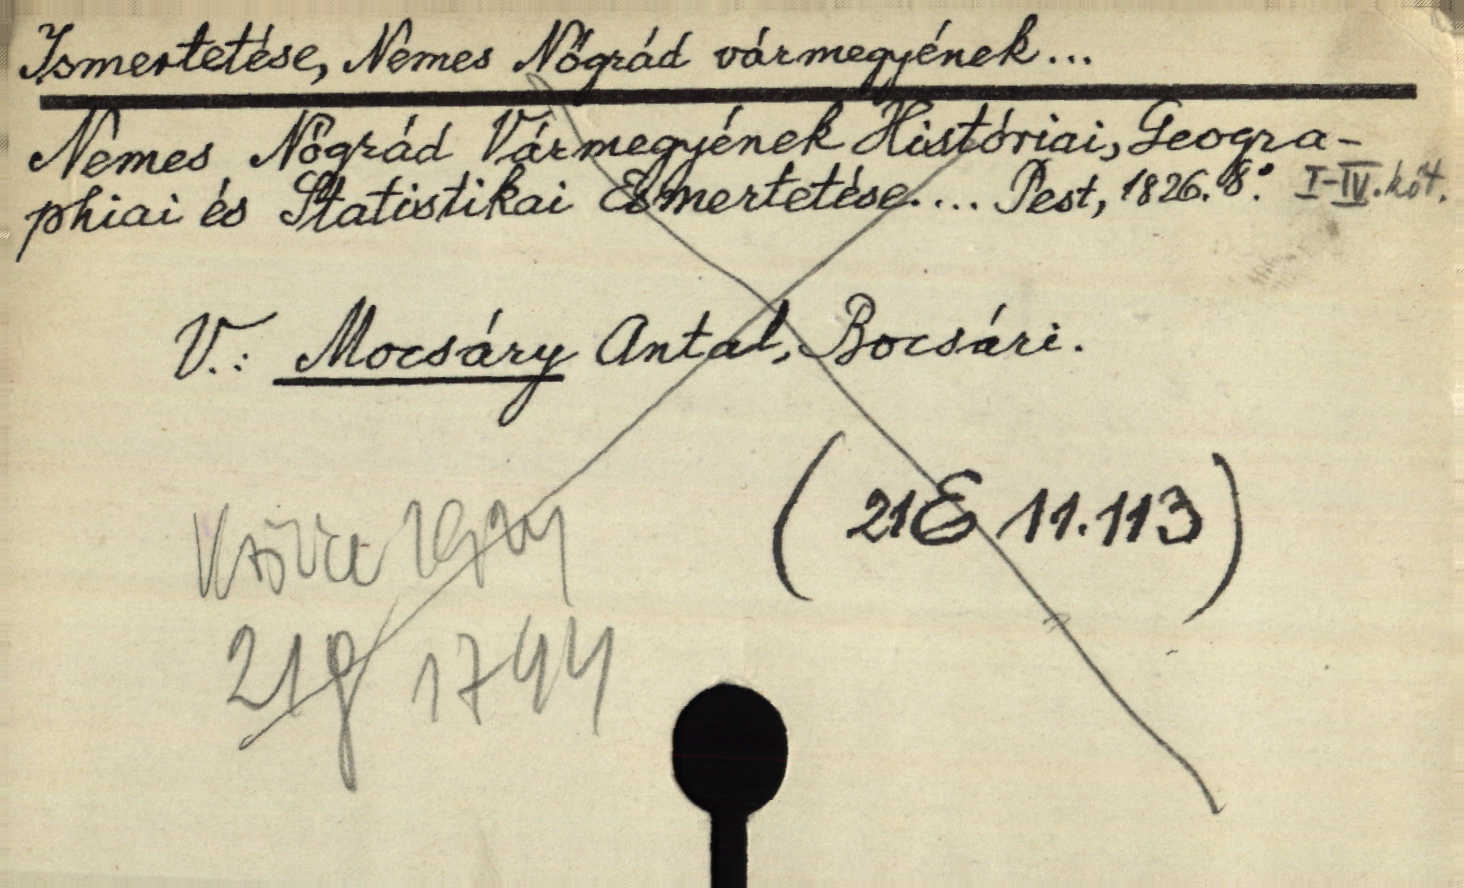 Ismertetése, Nemes Nógrád vármegyének...
Nemes Nógrád Vármegyének Históriai, Geogra-
phiai és Statistikai Esmertetése.... Pest, 1826. 8.° I-IV. köt.
V.: Mocsáry Antal, Bocsári.
(21E 11.113)
21g 1744